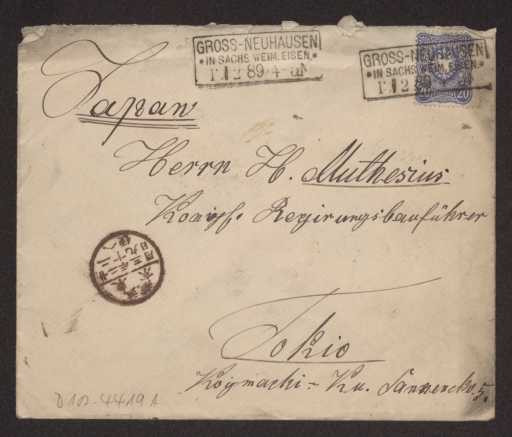 GROSS-NEUHAUSEN
*IN SACHS.WEIM.EISEN.*
1 2 89 4-5N
GROSS-NEUHAUSEN
*IN SACHS.WEIM.EISEN.*
1 2
20 20
Japan
Herrn H. Muthesius
Königl. Regierungsbauführer
Tokio
Kojimachi-Ku.
5.
D 102-4419 1